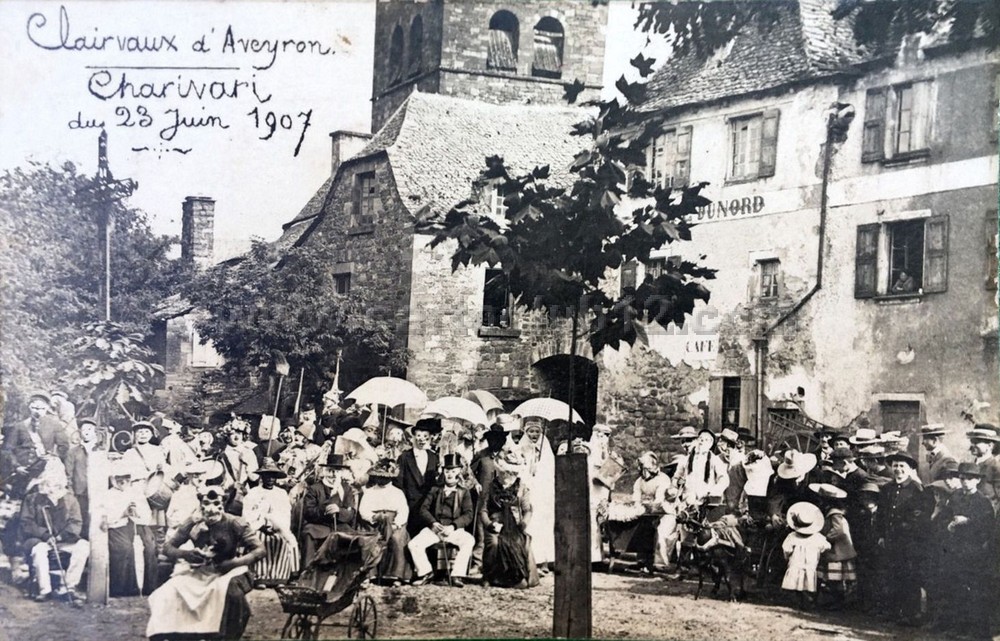 Clairvaux d'Aveyron.
Charivari
du 23 Juin 1907
DUNORD
CAFÉ